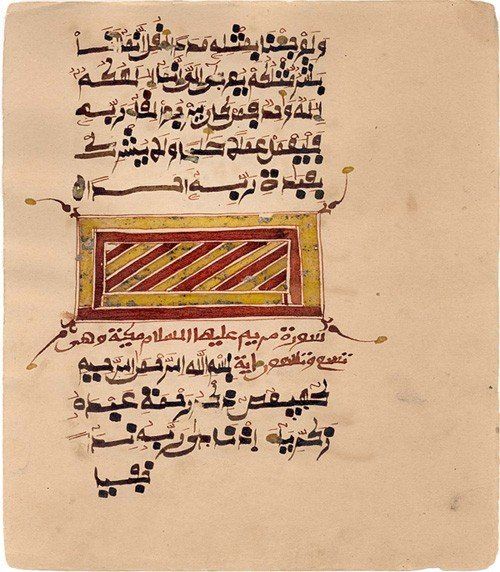 ولو جئنا بمثله مددا قل انما انا
بشر مثلكم يوحى الي انما الهكم
اله واحد فمن كان يرجوا لقاء ربه
فليعمل عملا صلحا ولا يشرك
بعبادة ربه احدا
سورة مريم عليها السلام مكية وهي
تسع وتسعون اية بسم الله الرحمن الرحيم
كهيعص ذكر رحمة عبده
زكرياء اذ نادى ربه نداء
خفيا